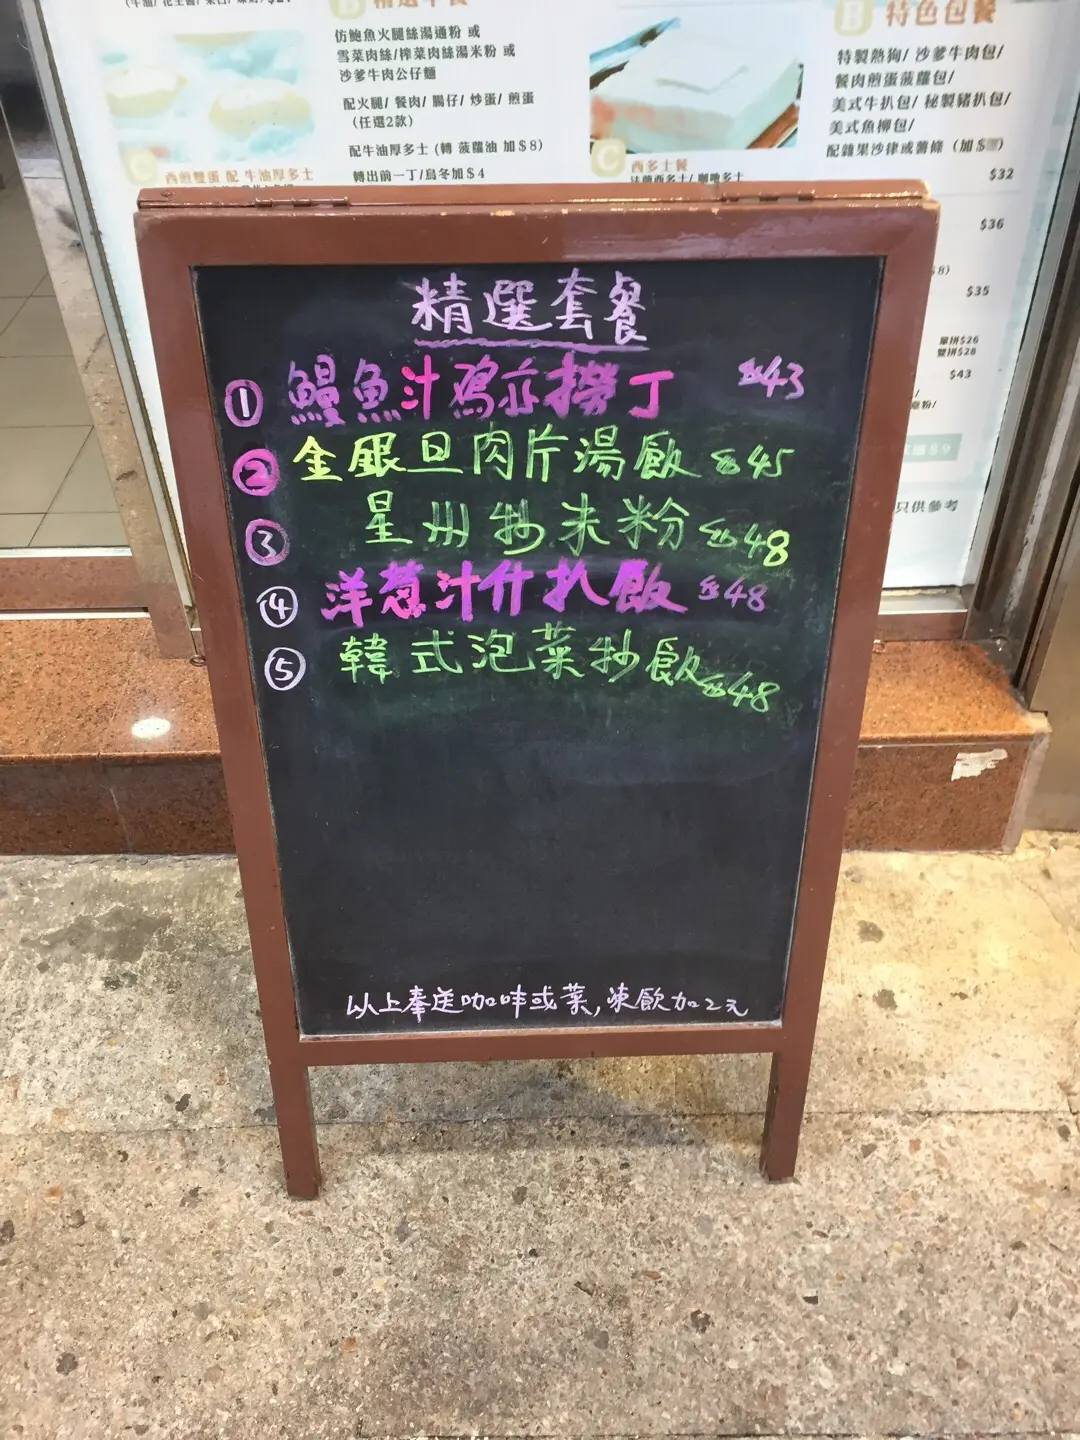 精選午餐
特色包餐
仿鮑魚火腿絲湯通粉 或
雪菜肉絲/榨菜肉絲湯米粉 或
沙爹牛肉公仔麵
配火腿/ 餐肉/ 腸仔/ 炒蛋/ 煎蛋
（任選2款）
配牛油厚多士 (轉 菠蘿油 加$8)
轉出前一丁/烏冬加$4
C
西煎雙蛋 配 牛油厚多士
C
西多士餐
法蘭西多士/ 咖央多士
B
B
特製熱狗/ 沙爹牛肉包/
餐肉煎蛋菠蘿包/
美式牛扒包/ 秘製豬扒包/
美式魚柳包/
配雜果沙律或薯條（加$
$32
$36
$8)
$35
單拼$26
雙拼$28
$43
粉/
只供參考
精選套餐
① 鰻魚汁鸡亦撈丁 $43
② 金銀旦肉片湯飯 $45
③ 星州炒米粉 $48
④ 洋葱汁什扒飯 $48
⑤ 韓式泡菜炒飯 $48
以上奉送咖啡或茶,凍飲加2元